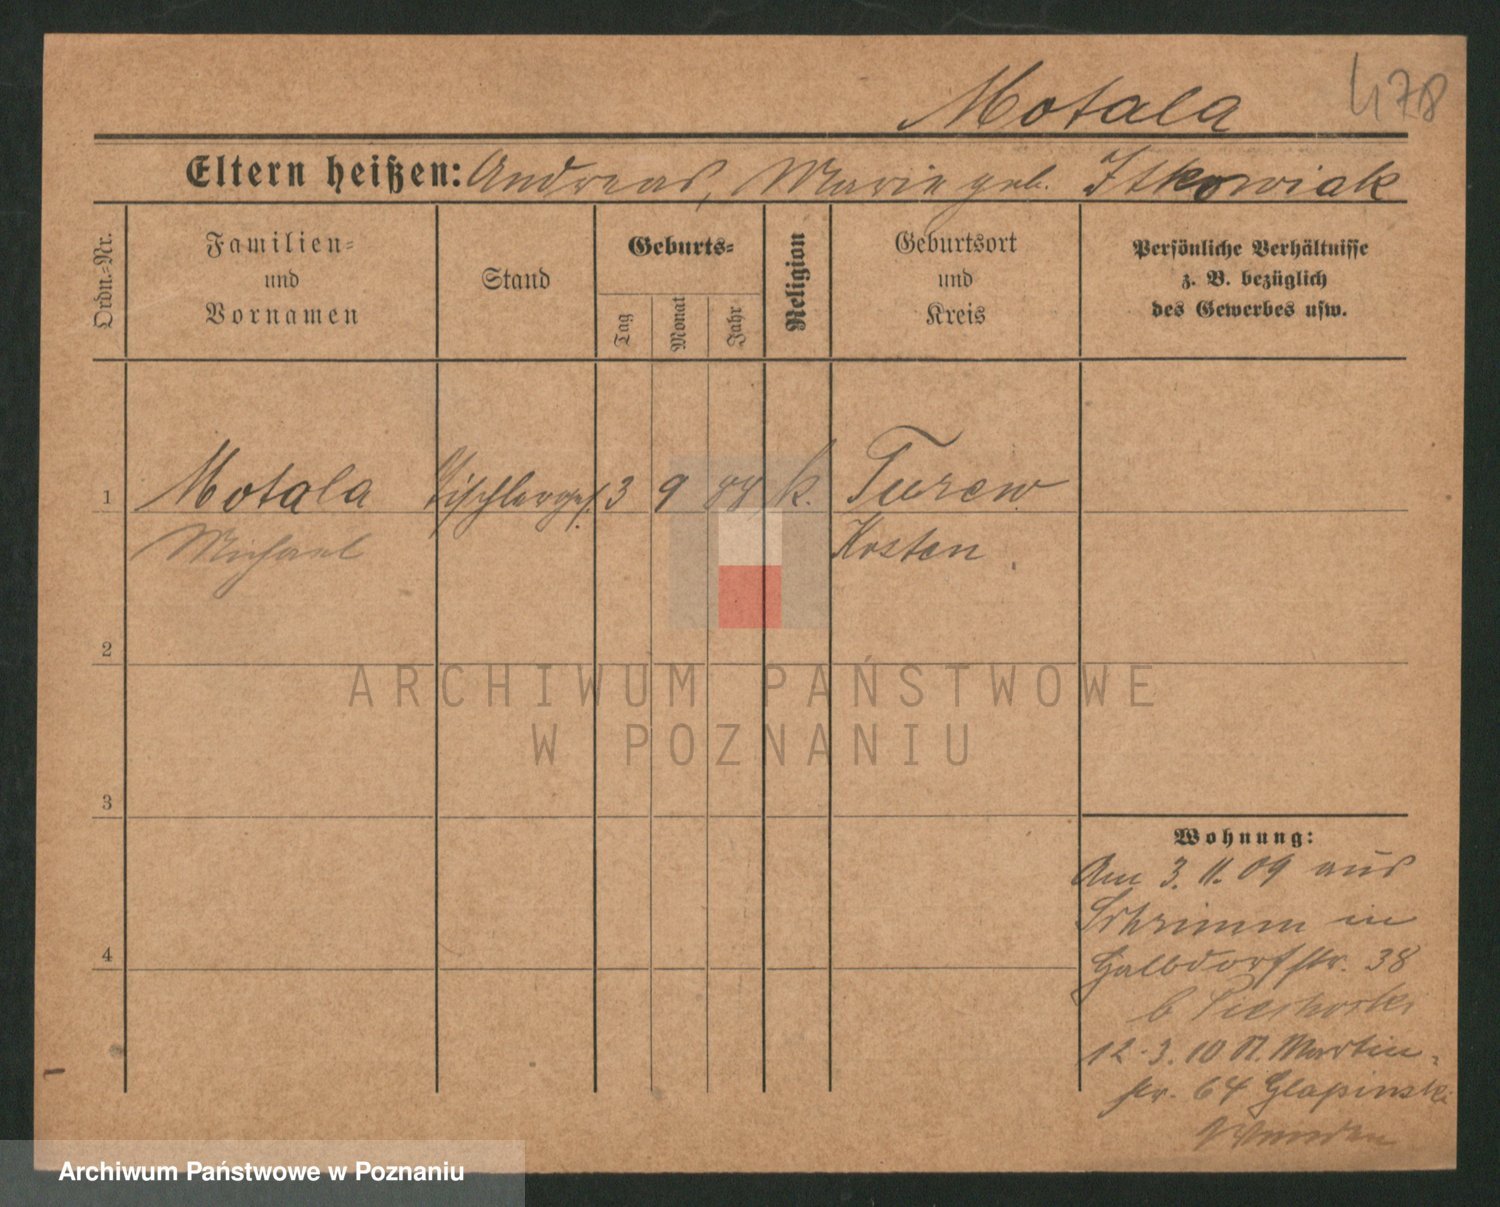 Motala
478
Eltern heißen: Andreas, Marie geb. Itkowiak
Ordn.-Nr.
Familien-
und
Vornamen
Stand
Geburts-
Tag
Monat
Jahr
Religion
Geburtsort
und
Kreis
Persönliche Verhältnisse
z. B. bezüglich
des Gewerbes usw.
1 Motala Tischlerges. 3 9 88 k. Turew
Michael Kosten.
2
3
4
Wohnung:
Am 3. 11. 09 aus
Schrimm in
Halbdorfstr. 38
b
12.3.10 St. Martin-
str. 64 Glapinski
ARCHIWUM PAŃSTWOWE
W POZNANIU
Archiwum Państwowe w Poznaniu